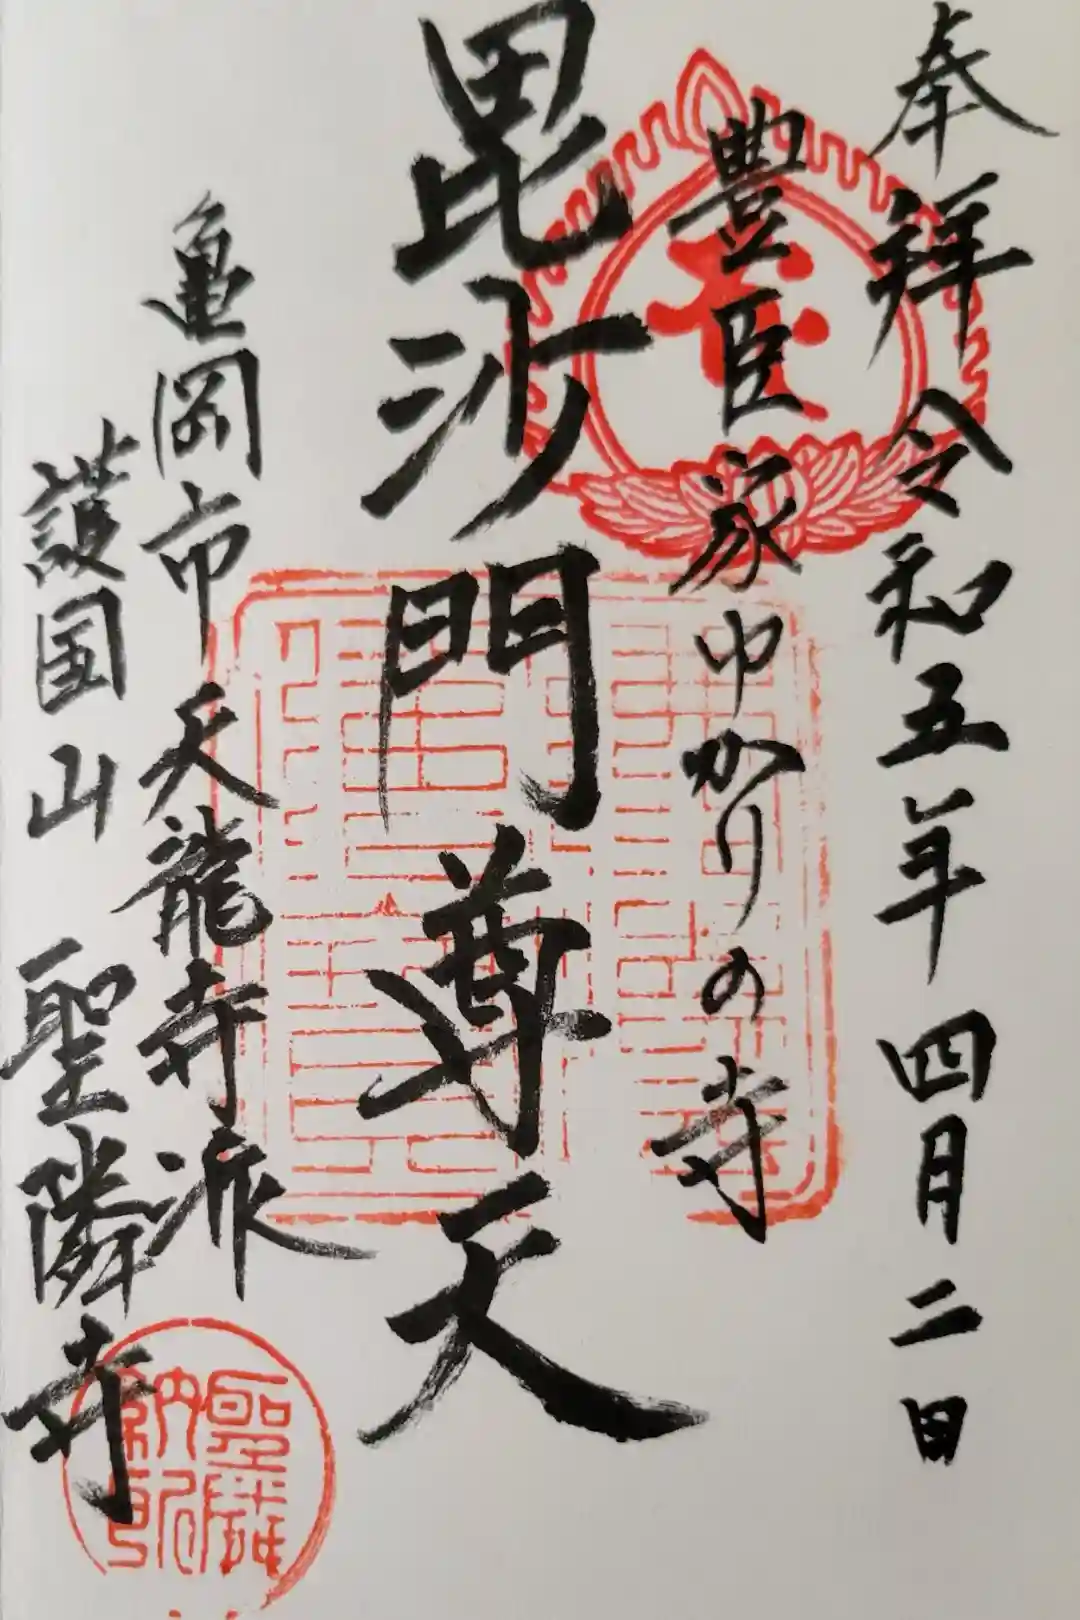 奉拝 令和五年四月二日
豊臣家ゆかりの寺
毘沙門尊天
亀岡市 天龍寺派
護国山 聖隣寺
聖隣
納印